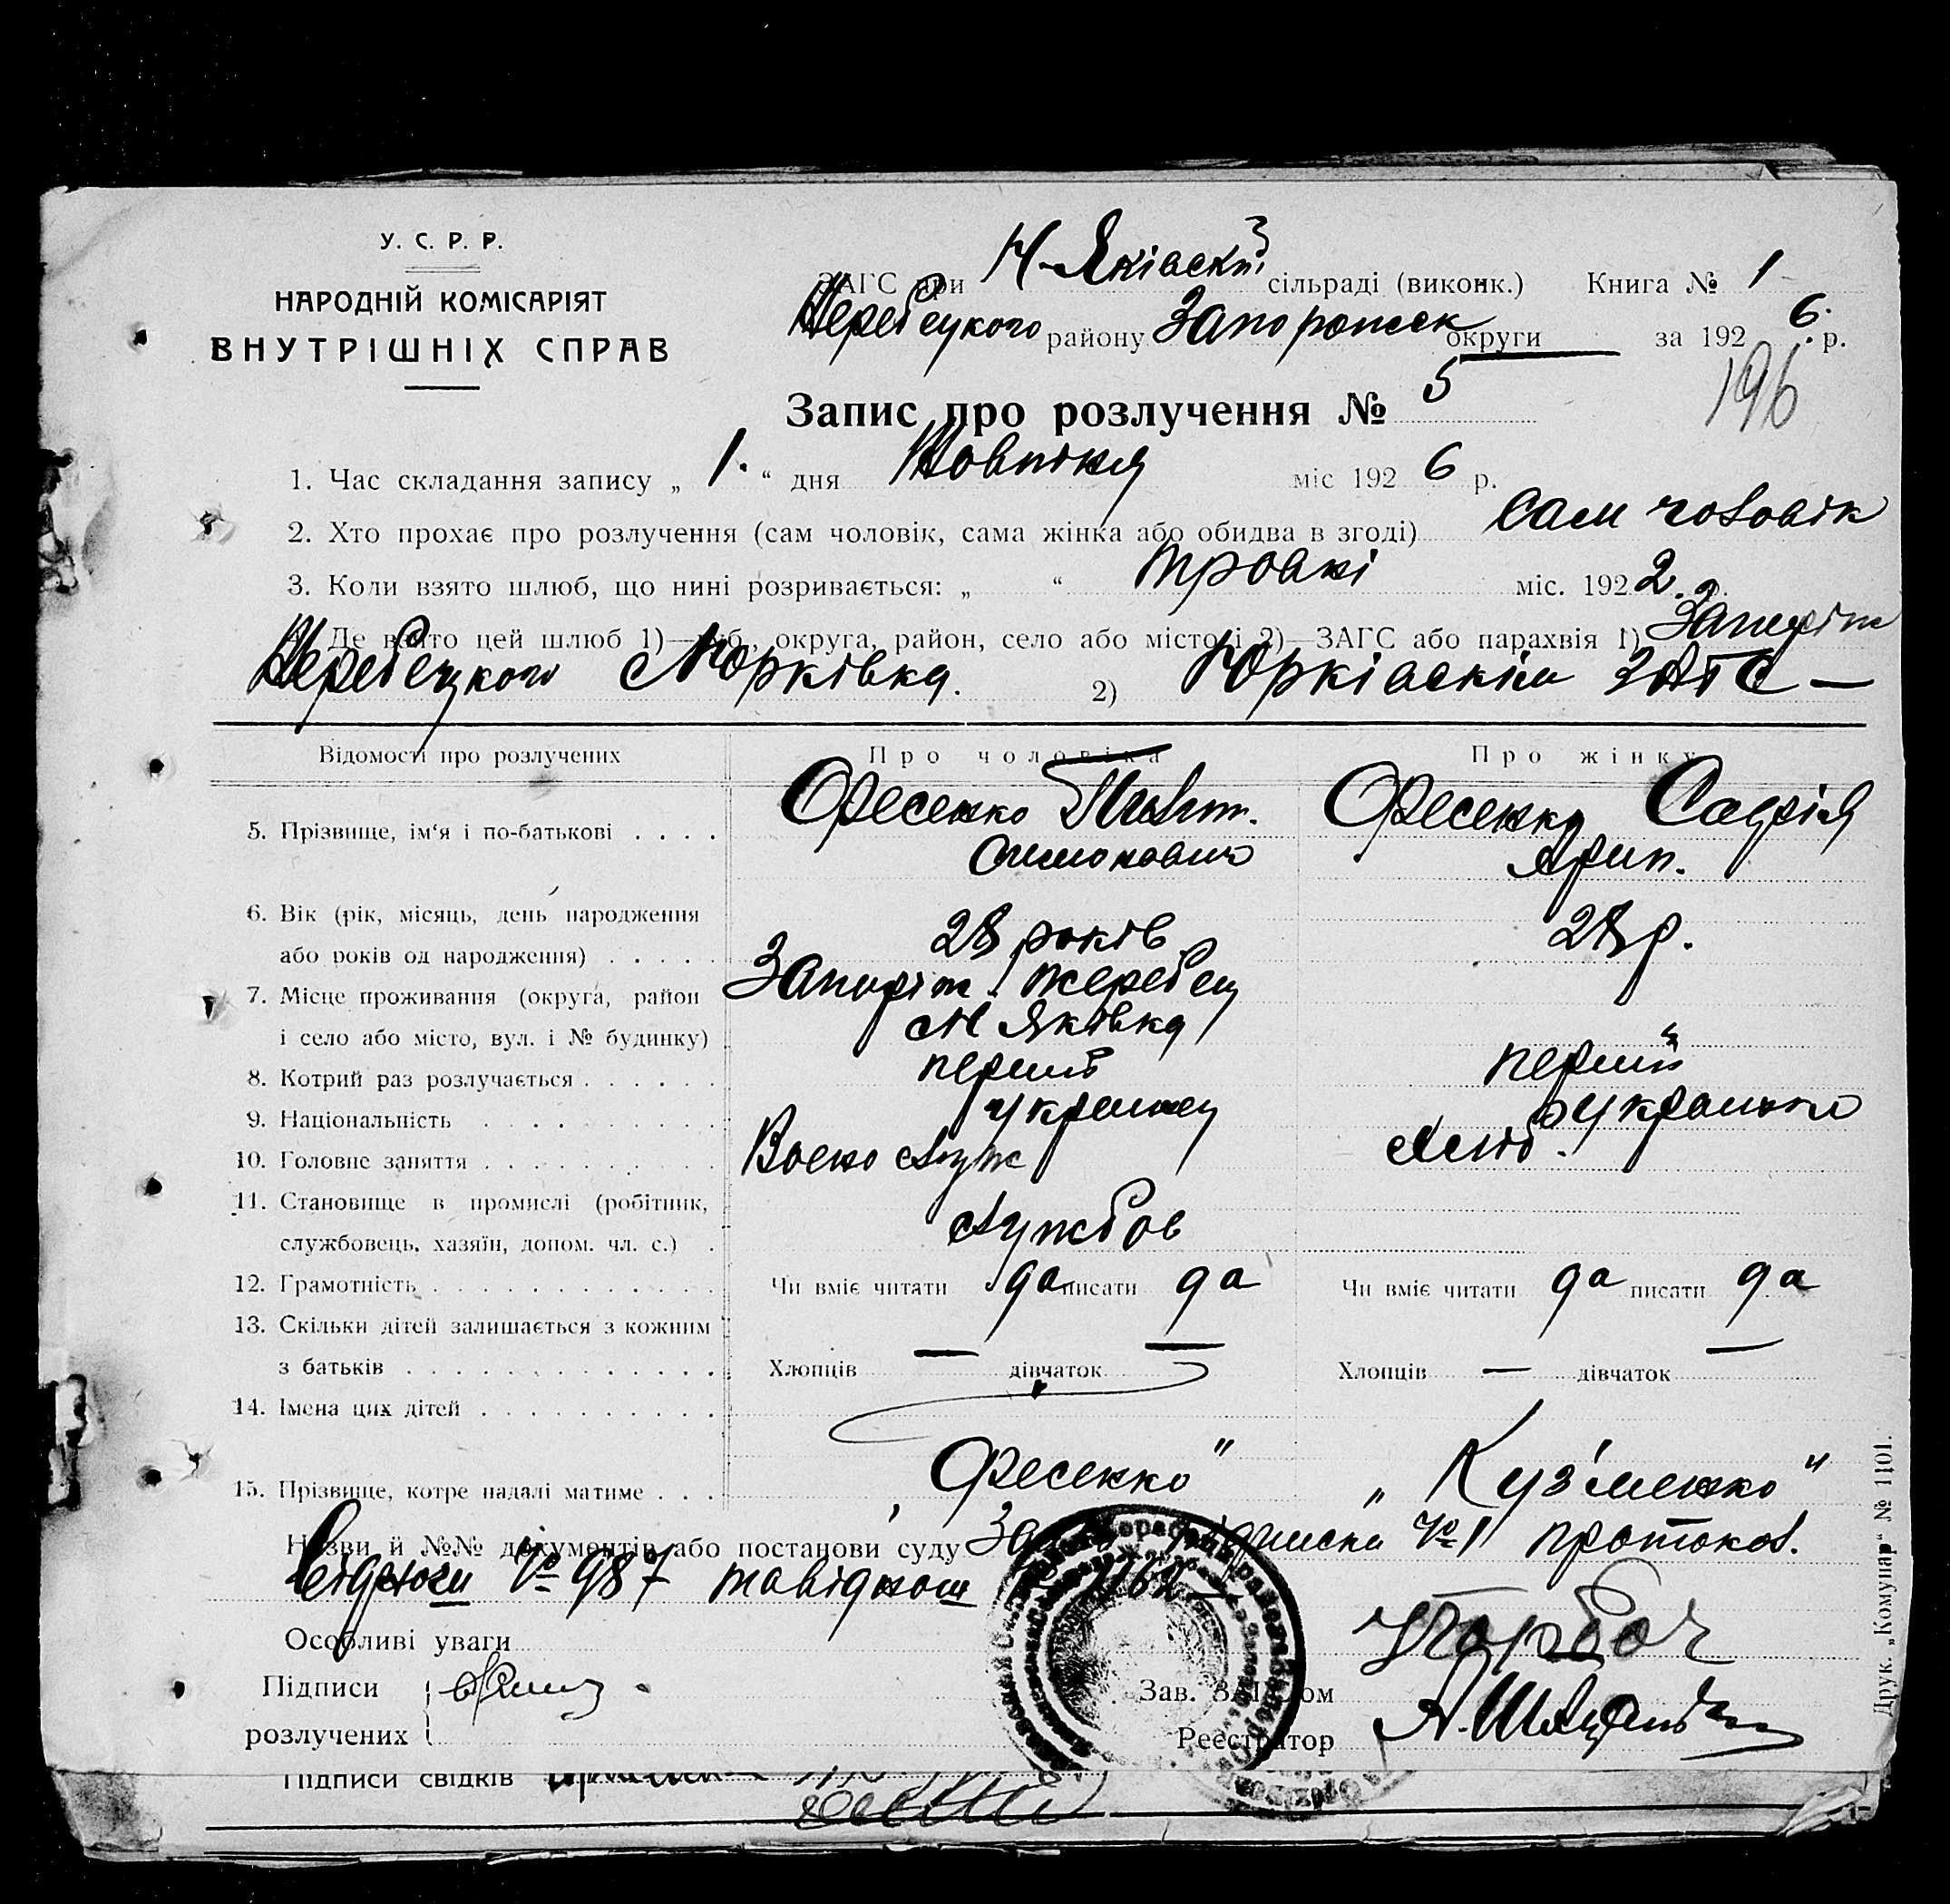 У. С. Р. Р.
НАРОДНІЙ КОМІСАРІЯТ
ВНУТРІШНІХ СПРАВ
ЗАГС при Н-Яківскі сільраді (виконк.) Книга № 1
Жеребецкого району Запорожск округи за 192 6. р.
Запис про розлучення № 5
196
1. Час складання запису „ 1. “ дня Жовтня міс 192 6 р.
2. Хто прохає про розлучення (сам чоловік, сама жінка або обидва в згоді) сам чоловік
3. Коли взято шлюб, що нині розривається: „ “ травні міс. 192 2. р.
Де взято цей шлюб 1)—губ., округа, район, село або місто і 2)—ЗАГС або парахвія 1) Запоріж
Жеребецкого Юрківка. 2) Юрківскім ЗАГС —
Відомості про розлучених Про чоловіка Про жінку
5. Прізвище, ім'я і по-батькові . . . . Фесенко Пилип. Фесенко Софія
Симонович Ярип.
6. Вік (рік, місяць, день народження
або років од народження) . . . . . 28 років 28 р.
7. Місце проживання (округа, район Запоріж. Жеребец
і село або місто, вул. і № будинку) Яківка
8. Котрий раз розлучається . . . . . . перший перший
9. Національність . . . . . . . . . українец українка
10. Головне заняття . . . . . . . . . . Воено служ хліб.
11. Становище в промислі (робітник,
службовець, хазяїн, допом. чл. с.) . службов
12. Грамотність . . . . . . . . . . . . Чи вміє читати да писати да Чи вміє читати да писати да
13. Скільки дітей залишається з кожним
з батьків . . . . . . . . . . . . . Хлопців — дівчаток — Хлопців — дівчаток —
14. Імена цих дітей . . . . . . . . . .
15. Прізвище, котре надалі матиме . . . „Фесенко" „Кузьменко"
Назви й №№ документів або постанови суду № 1 протокол.
№ 987
Особливі уваги
Підписи
розлучених
Зав. ЗАГСом
Реєстратор
Підписи свідків
Друк. „Комунар“ № 1101.